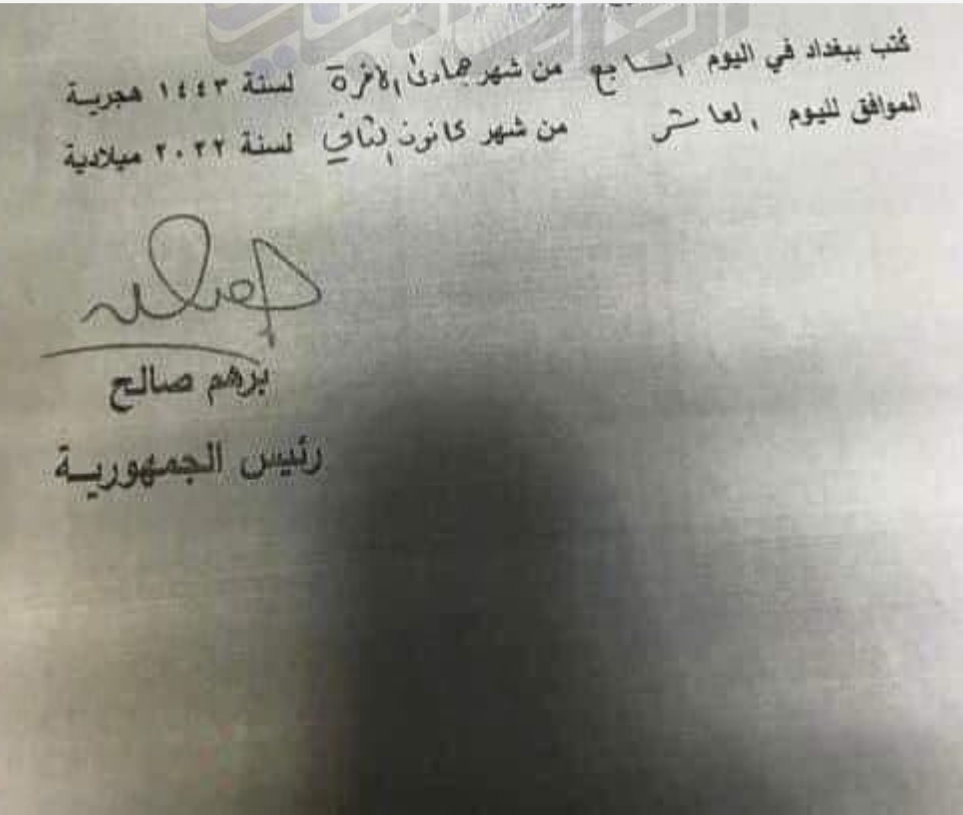 كُتب ببغداد في اليوم السابع من شهر جمادى الآخرة لسنة ١٤٤٣ هجريـة
الموافق لليوم العاشر من شهر كانون الثاني لسنة ٢٠٢٢ ميلادية
برهم صالح
رئيس الجمهوريـة